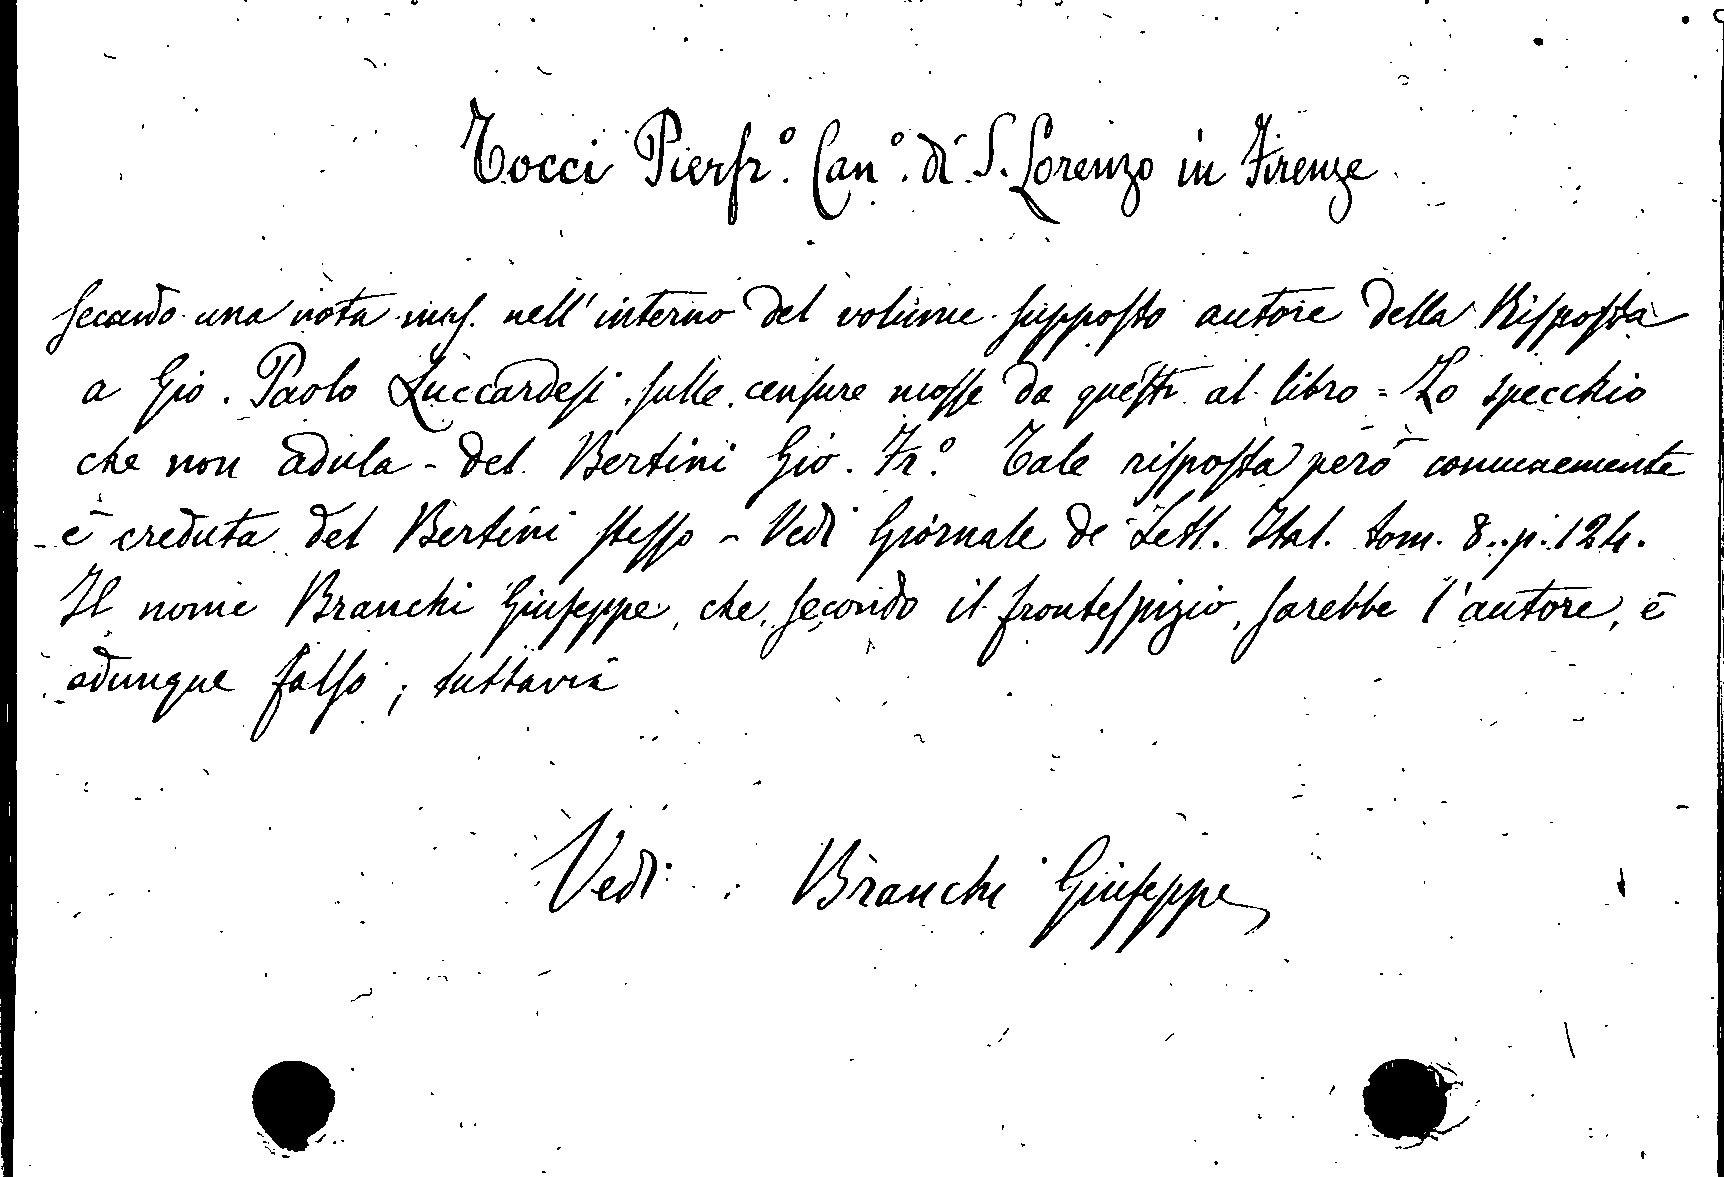 Tocci Pierfr.º Can.º di S. Lorenzo in Firenze
secondo una nota ms. nell'interno del volume supposto autore della Risposta
a Gio. Paolo Luccardesi sulle censure mosse da questi al libro = Lo specchio
che non adula - del Bertini Gio. Fr.º Tale risposta però comunemente
è creduta del Bertini stesso - Vedi Giornale de Lett. Ital. tom. 8. p. 124.
Il nome Branchi Giuseppe, che, secondo il frontespizio, sarebbe l'autore, è
adunque falso; tuttavia
Vedi: Branchi Giuseppe